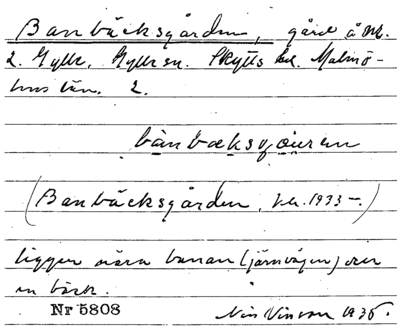 Banbäcksgården, gård å nr.
2. Gylle, Gylle sn. Skytts hd. Malmö-
hus län. 2.
(Banbäcksgården, 1933-.)
ligger nära banan (järnvägen) över
en bäck.
Nr 5808 1935.